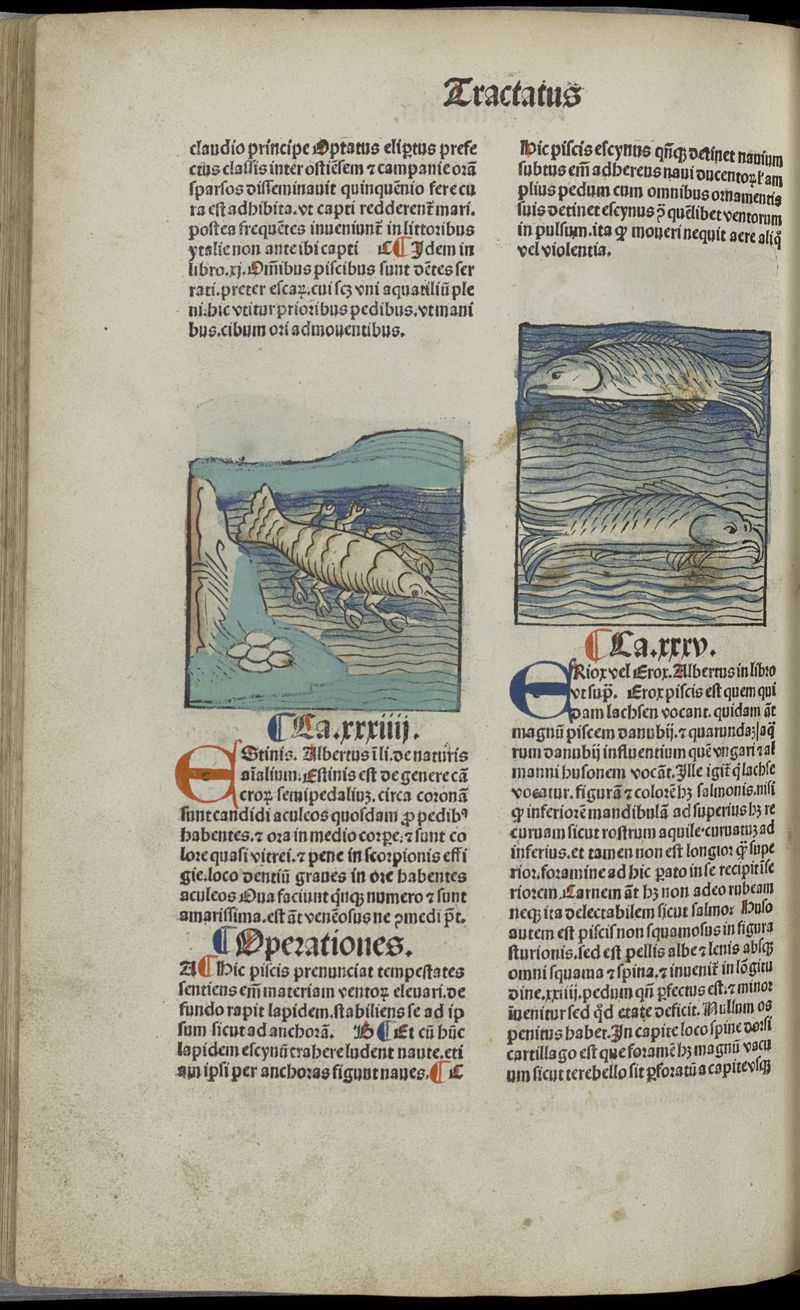 Tractatus
claudio principe Optatus eliptus prefe
ctus classis inter ostiẽsem ⁊ campanie orã
sparsos disseminauit quinquẽnio fere cu
ra est adhibita. vt capti redderent᷑ mari.
postea frequẽtes inueniunt᷑ in littoribus
ytalie non ante ibi capti C ¶ Idem in
libro. xj. Om̃ibus piscibus sunt dẽtes ser
rati. preter escaꝝ. cui scꝫ vni aquatiliũ ple
ni. hic vtitur prioribus pedibus. vt mani
bus. cibum ori admouentibus.
¶ Ca. xxxiiij.
EStinis. Albertus ĩ li. de naturis
aĩalium. Estinis est de genere cã
croꝝ semipedaliuꝫ. circa coronã
sunt candidi aculeos quosdam ꝓ pedibꝰ
habentes. ⁊ ora in medio corpe. ⁊ sunt co
lore quasi vitrei. ⁊ pene in scorpionis effi
gie. loco dentiũ graues in ore habentes
aculeos Oua faciunt qͥnqꝫ numero ⁊ sunt
amarissima. est ãt venẽosus ne ꝯmedi p̃t.
¶ Operationes.
A ¶ Hic piscis prenunciat tempestates
sentiens em̃ materiam ventoꝝ eleuari. de
fundo rapit lapidem. stabiliens se ad ip
sum sicut ad anchorã. B ¶ Et cũ hũc
lapidem escynũ trahere ludent naute. eti
am ipsi per anchoras figunt naues. ¶ C
Hic piscis escynus qñqꝫ detinet nauium
subtus em̃ adhereus naui ducentoꝝ l᷑ am
plius pedum cum omnibus ornamentis
suis detinet escynus ꝯ quẽlibet ventorum
in pulsum. ita ꝙ moueri nequit aere aliqͣ
vel violentia.
¶ Ca. xxxv.
ERiox vel Erox. Albertus in libro
vt sup̃. Erox piscis est quem qui
dam lachsen vocant. quidam ãt
magnũ piscem danubij. ⁊ quarundaꝫ aq̃
rum danubij influentium quẽ vngari ⁊ al
manni husonem vocãt. Ille igit᷑ qͥ lachse
vocatur. figurã ⁊ colorẽ hꝫ salmonis. nisi
ꝙ inferiorẽ mandibulã ad superius hꝫ re
curuam sicut rostrum aquile curuatuꝫ ad
inferius. et tamen non est longior q̃ᷓ supe
rior. foramine ad hic pato in se recipit ĩfe
riorem. Carnem ãt hꝫ non adeo rubeam
neqꝫ ita delectabilem sicut salmo. Huso
autem est piscis non squamosus in figura
sturionis. sed est pellis albe ⁊ lenis absqꝫ
omni squama ⁊ spina. ⁊ inuenit᷑ in lõgitu
dine. xxiiij. pedum qñ ꝑfectus est. ⁊ minor
ĩuenitur sed qͥd etate deficit. Nullum os
penitus habet. In capite loco spine dorsi
cartillago est que foramẽ hꝫ magnũ vacu
um sicut terebello sit ꝑforatũ a capite vsqꝫ